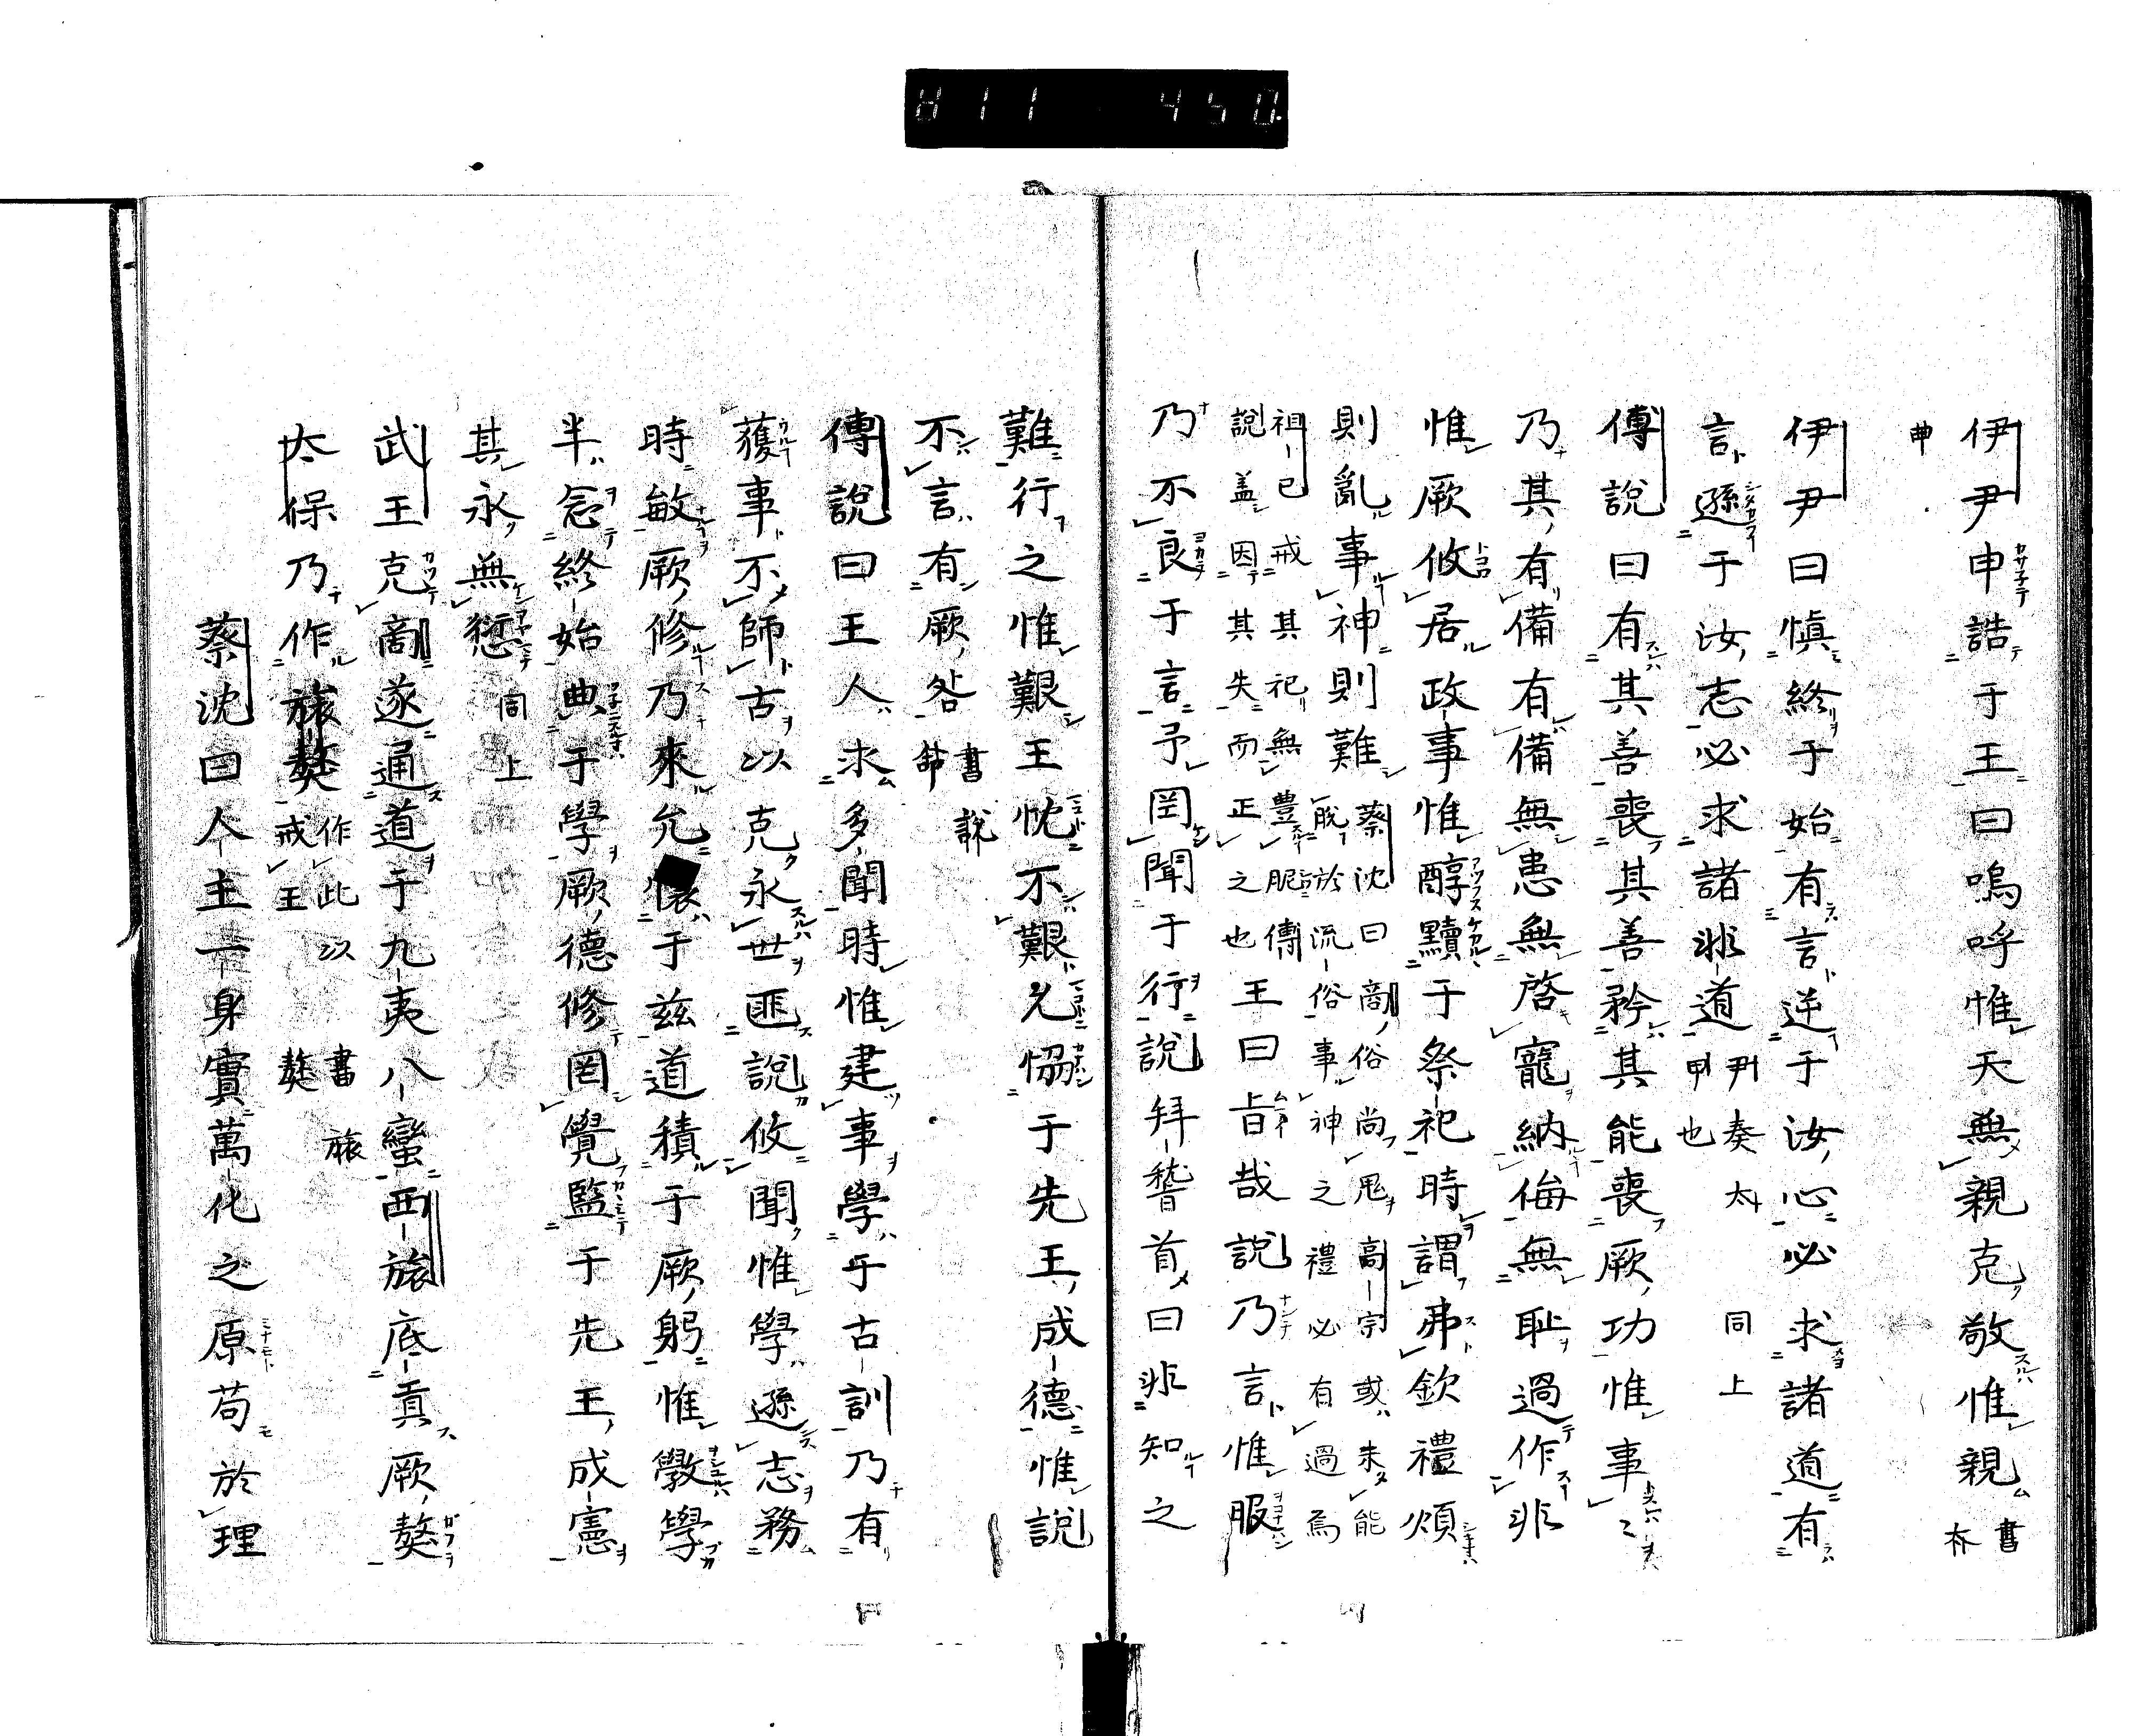 811 450
伊尹申誥于王曰嗚呼惟天無親克敬惟親書太
甲
伊尹曰慎終于始有言逆于汝心必求諸道有
言遜于汝志必求諸非道尹奏太甲也同上
傅說曰有其善喪其善矜其能喪厥功惟事〻
乃其有備有備無患無啓寵納侮無耻過作非
惟厥攸居政事惟醇黷于祭祀時謂弗欽禮煩
則亂事神則難蔡沈曰商俗尚鬼高宗或未能
脫於流俗事神之禮必有過焉
祖己戒其祀無豊昵傅
說盖因其失而正之也王曰旨哉說乃言惟服
乃不良于言予罔聞于行說拜稽首曰非知之
難行之惟艱王忱不艱允恊于先王成德惟說
不言有厥咎書說命
傅說曰王人求多聞時惟建事學于古訓乃有
獲事不師古以克永世匪說攸聞惟學遜志務
時敏厥修乃來允懷于兹道積于厥躬惟斆學
半念終始典于學厥德修罔覺監于先王成憲
其永無愆同上
武王克商遂通道于九夷八蠻西旅底貢厥獒
太保乃作旅獒作此以戒王書旅獒
蔡沈曰人主一身實萬化之原苟於理